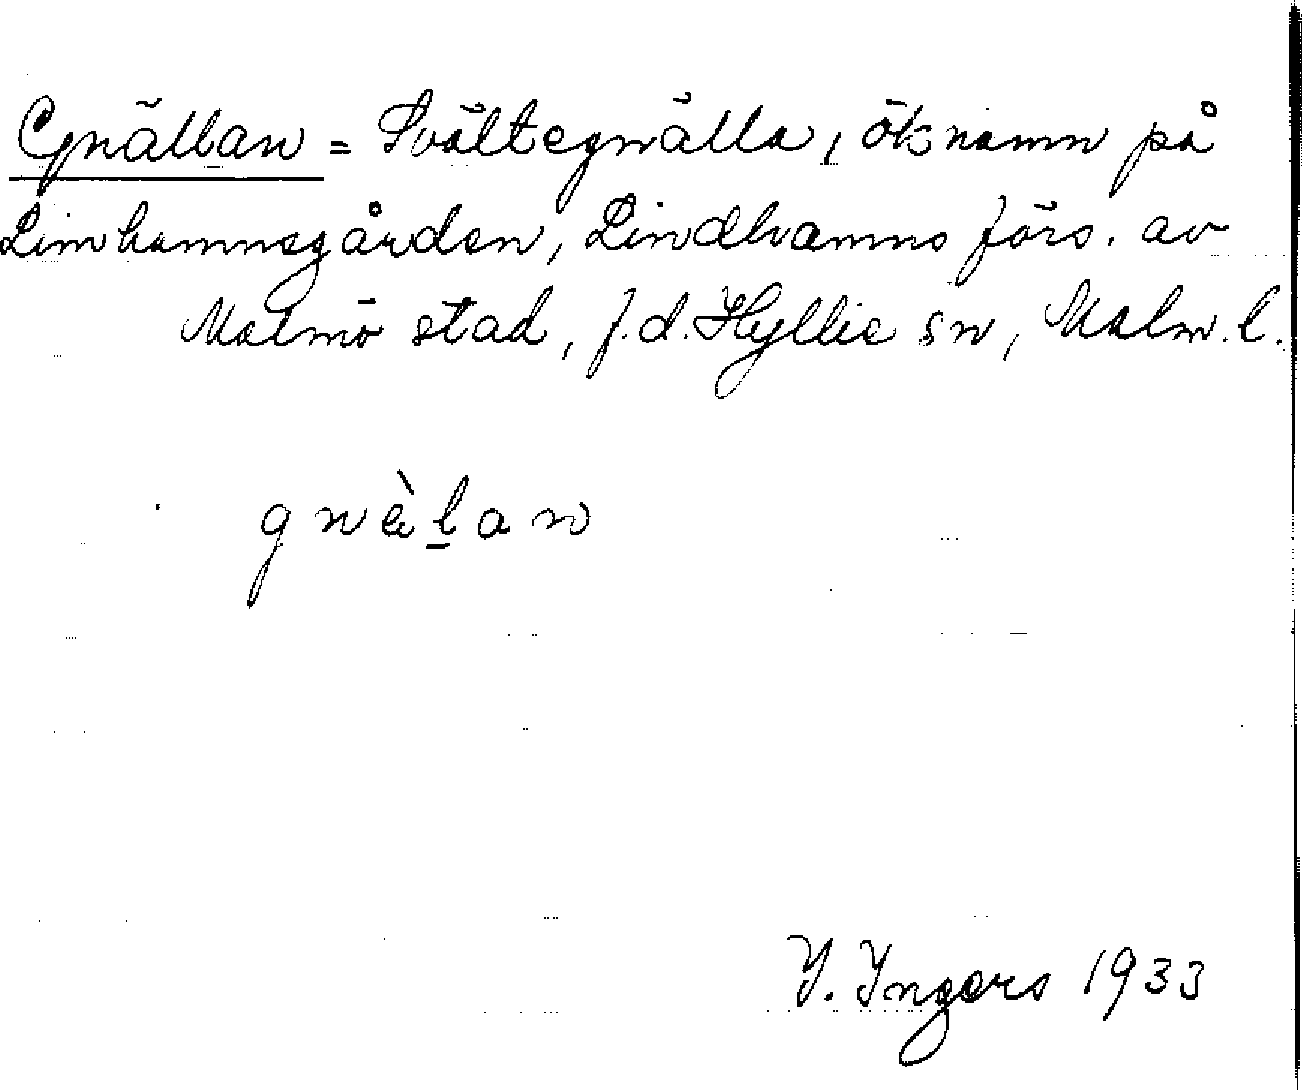 Gnällan = Svältegnälla, öknamn på
Limhamnsgården, Lindhamns förs. av
Malmö stad, f.d. Hyllie sn, Malm. l.
gnèlan
I. Ingers 1933